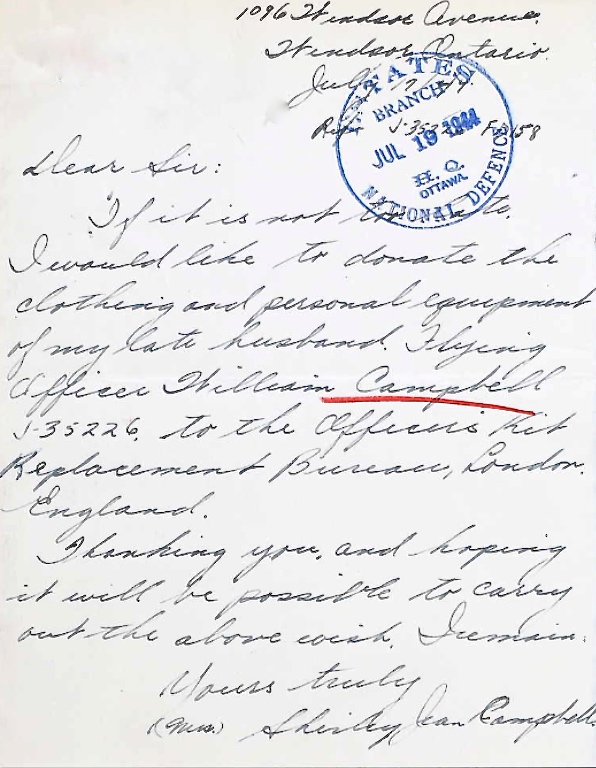 1096 Windsor Avenue.
Windsor, Ontario.
July 17/44.
Re: J-35226 Fd158
ESTATES
BRANCH
JUL 19 1944
H.Q.
OTTAWA
NATIONAL DEFENCE
Dear Sir:
If it is not too late,
I would like to donate the
clothing and personal equipment
of my late husband. Flying
Officer William Campbell
J-35226, to the Officers Kit
Replacement Bureau, London.
England.
Thanking you, and hoping
it will be possible to carry
out the above wish. I remain.
Yours truly
(Mrs.) Shirley Jean Campbell.